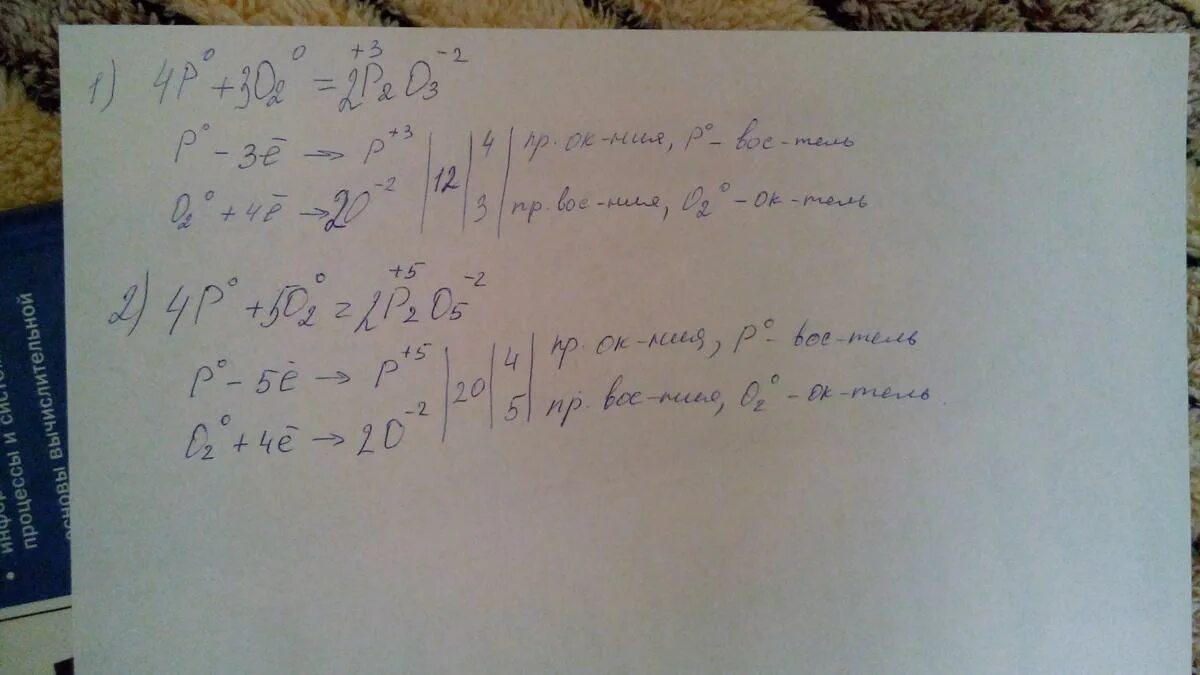 1) 4P⁰ + 3O₂⁰ = 2P₂⁺³O₃⁻²
P⁰ - 3ē → P⁺³ | 12 | 4 | пр. ок-ния, P⁰ - вос-тель
O₂⁰ + 4ē → 2O⁻² | 3 | пр. вос-ния, O₂⁰ - ок-тель
2) 4P⁰ + 5O₂⁰ = 2P₂⁺⁵O₅⁻²
P⁰ - 5ē → P⁺⁵ | 20 | 4 | пр. ок-ния, P⁰ - вос-тель
O₂⁰ + 4ē → 2O⁻² | 5 | пр. вос-ния, O₂⁰ - ок-тель.
процессы и систем
основы вычислительной